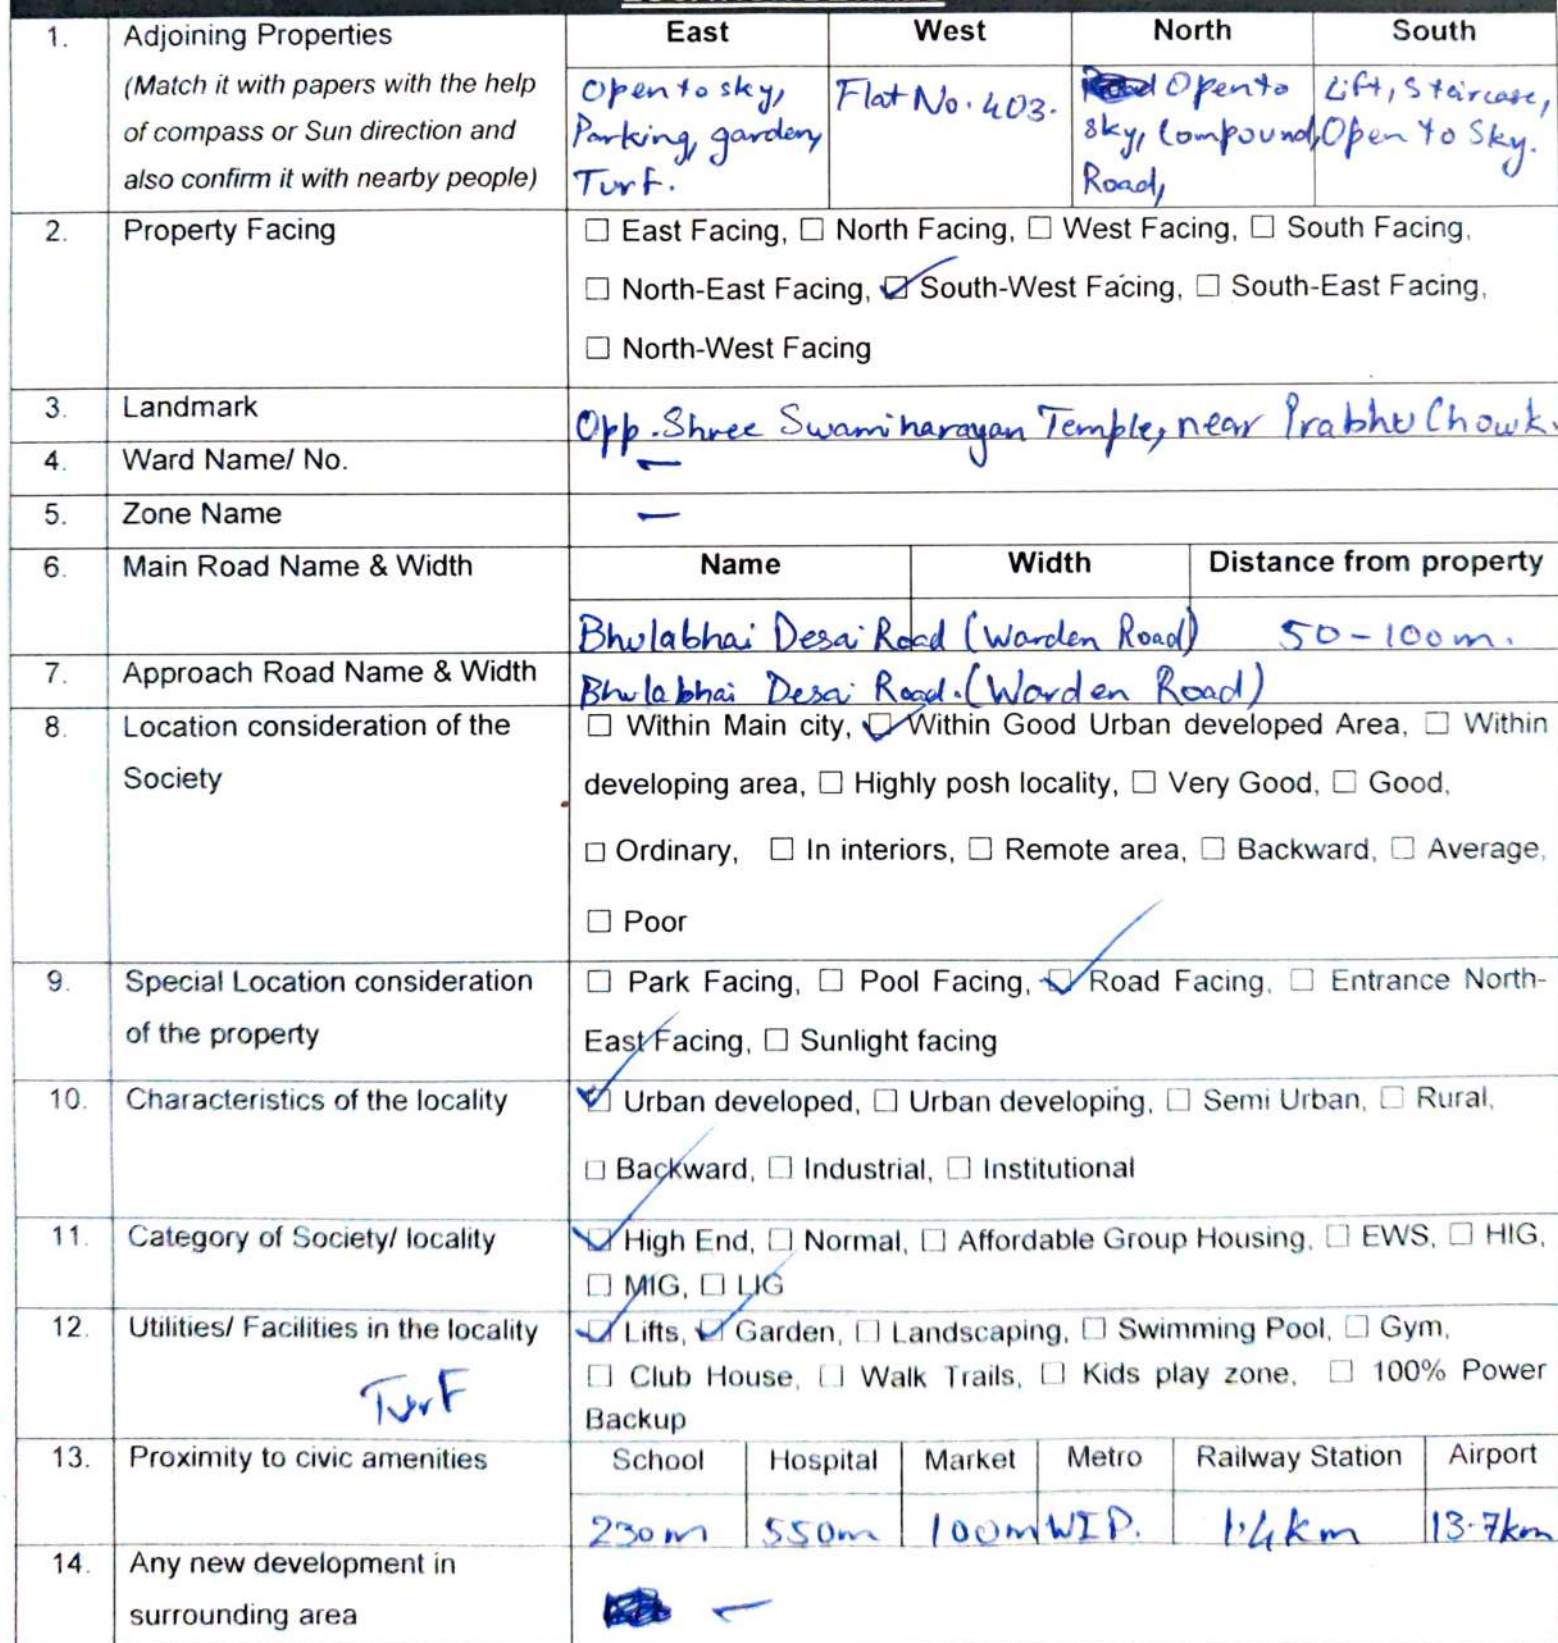 1. Adjoining Properties East West North South
(Match it with papers with the help
of compass or Sun direction and
also confirm it with nearby people)
Open to sky,
Parking, garden,
Turf.
Flat No. 403.
Open to
sky, Compound,
Road,
Lift, Staircase,
Open to Sky.
2. Property Facing ☐ East Facing, ☐ North Facing, ☐ West Facing, ☐ South Facing,
☐ North-East Facing, ☑ South-West Facing, ☐ South-East Facing,
☐ North-West Facing
3. Landmark Opp. Shree Swaminarayan Temple, near Prabhu Chowk.
4. Ward Name/ No. –
5. Zone Name –
6. Main Road Name & Width Name Width Distance from property
Bhulabhai Desai Road (Warden Road) 50-100m.
7. Approach Road Name & Width Bhulabhai Desai Road. (Warden Road)
8. Location consideration of the
Society
☐ Within Main city, ☑ Within Good Urban developed Area, ☐ Within
developing area, ☐ Highly posh locality, ☐ Very Good, ☐ Good,
☐ Ordinary, ☐ In interiors, ☐ Remote area, ☐ Backward, ☐ Average,
☐ Poor
9. Special Location consideration
of the property
☐ Park Facing, ☐ Pool Facing, ☑ Road Facing, ☐ Entrance North-
East Facing, ☐ Sunlight facing
10. Characteristics of the locality ☑ Urban developed, ☐ Urban developing, ☐ Semi Urban, ☐ Rural,
☐ Backward, ☐ Industrial, ☐ Institutional
11. Category of Society/ locality ☑ High End, ☐ Normal, ☐ Affordable Group Housing, ☐ EWS, ☐ HIG,
☐ MIG, ☐ LIG
12. Utilities/ Facilities in the locality ☑ Lifts, ☑ Garden, ☐ Landscaping, ☐ Swimming Pool, ☐ Gym,
Turf
☐ Club House, ☐ Walk Trails, ☐ Kids play zone, ☐ 100% Power
Backup
13. Proximity to civic amenities School Hospital Market Metro Railway Station Airport
230m 550m 100m WIP. 1.4km 13.7km
14. Any new development in
surrounding area
–